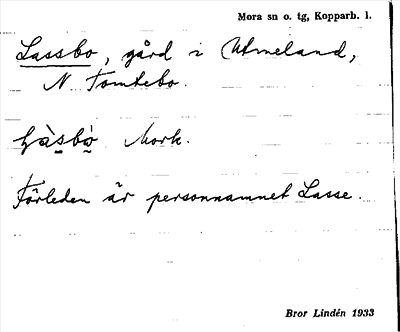 Mora sn o. tg, Kopparb. l.
Lassbo, gård i Utmeland,
N. Tomtebo.
Mork.
Förleden är personnamnet Lasse.
Bror Lindén 1933